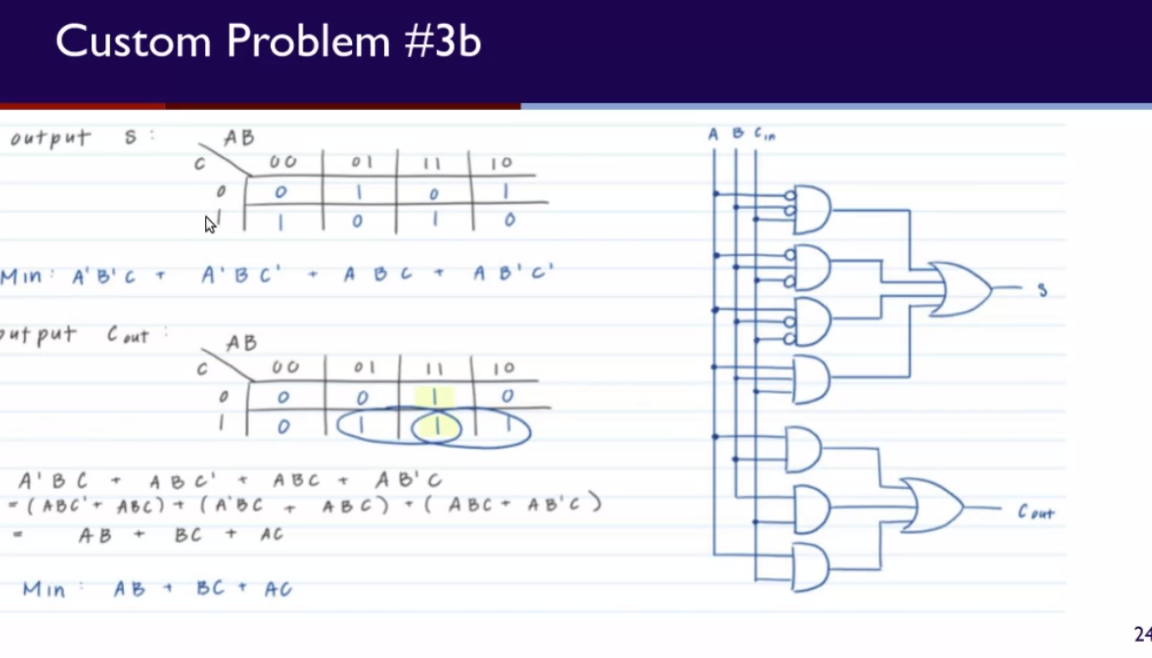 Custom Problem #3b
output S:
AB
C 00 01 11 10
0 0 1 0 1
1 1 0 1 0
Min: A'B'C + A'BC' + ABC + AB'C'
output Cout:
AB
C 00 01 11 10
0 0 0 1 0
1 0 1 1 1
A'BC + ABC' + ABC + AB'C
= (ABC' + ABC) + (A'BC + ABC) + (ABC + AB'C)
= AB + BC + AC
Min: AB + BC + AC
A B Cin
S
Cout
24